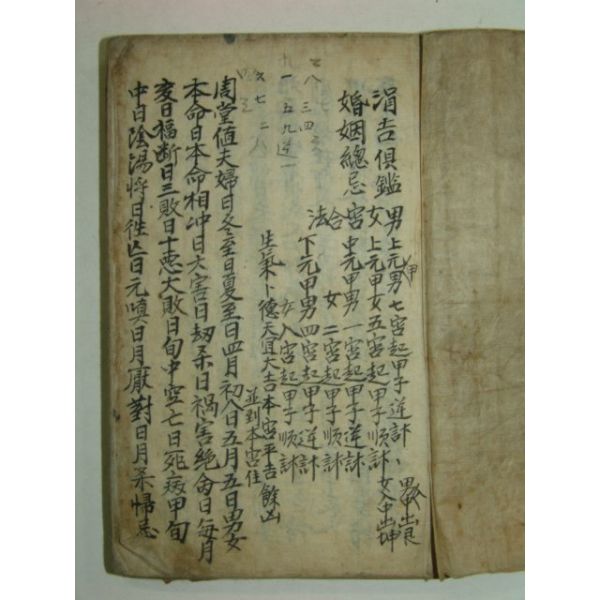 涓吉俱鑑
婚姻總忌
男女宮合法
男上元甲七宮起甲子逆計
女上元甲女五宮起甲子順計
中元甲男一宮起甲子逆計
女二宮起甲子順計
下元甲男四宮起甲子逆計
女八宮起甲子順計
男入中出艮
女入中出坤
生氣卜德天宜大吉本宮平吉餘凶
並到本宮住
周堂值夫婦日冬至日夏至日四月初八日五月五日男女
本命日本命相冲日大害日劫杀日禍害絶命日每月
亥日福断日三敗日十惡大敗日旬中空亡日死病甲旬
中日陰陽将日徃亡日元嗔日月厭對日月杀歸忌